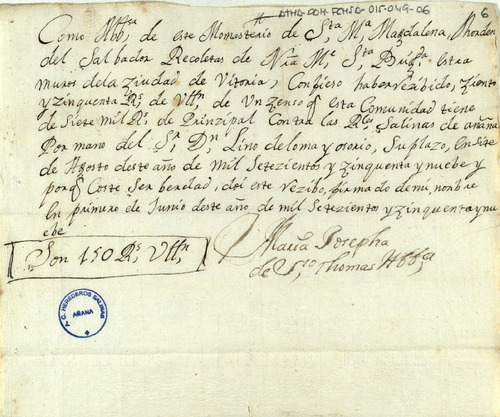 ATHA-DOH-FCHSA-015-049-06
6
Como Abb.ª de este Monasterio de S.ta M.ª Magdalena, Horden
del Salbador Recoletas de N.ra M.e S.ta Brig.da extra
muros de la Ziudad de Vitoria, Confieso haber rezibido, ziento
y zinquenta R.s de Vll.n de Un zenso q esta Comunidad tiene
de Siete mil R.s de Prinzipal Contra las R.les Salinas de añana
Por mano del S.r D.n Lino de loma y osorio, Su plazo, en siete
de Agosto deste año de Mil Setezientos y zinquenta y nuebe y
porq Coste Ser berdad, doi este rezibo, firmado de mi, nonbre
en primero de Junio deste año de mil Setezientos y zinquenta y nu
ebe
Son 150 R.s Vll.n
Maria Josepha
de S.to Thomas Abb.ª
A.C. HEREDEROS SALINAS
AÑANA